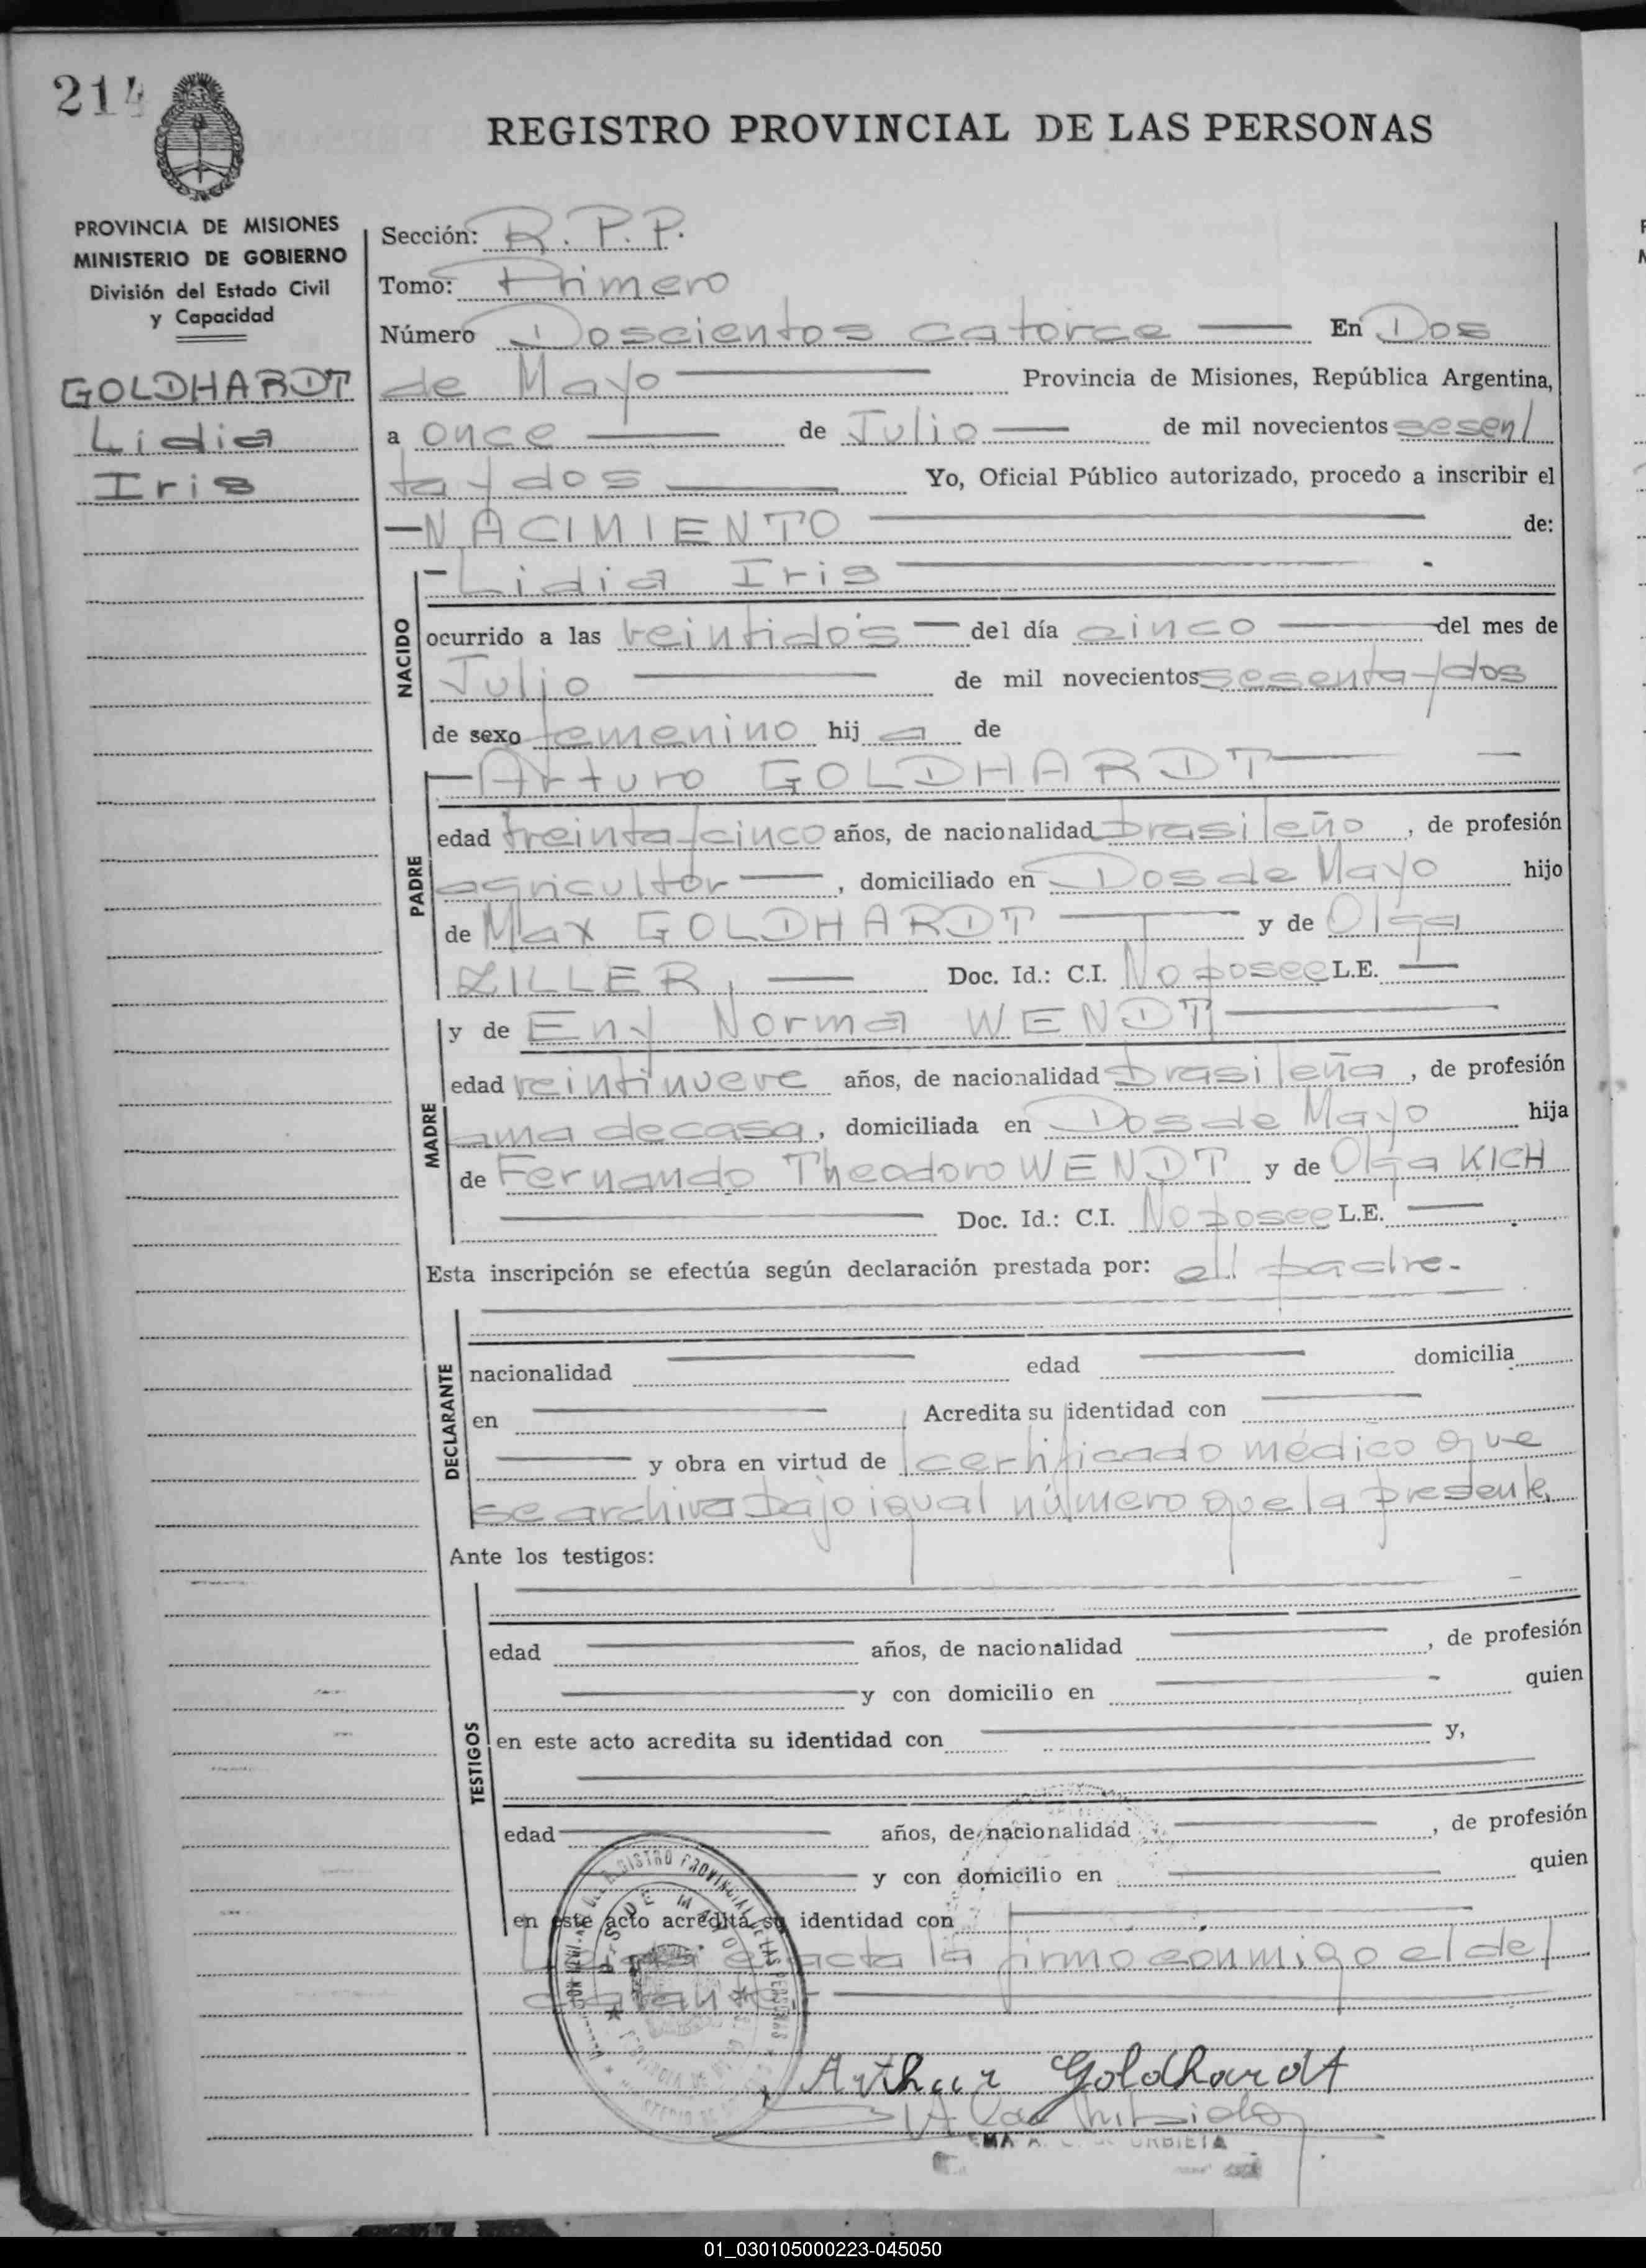 214
REGISTRO PROVINCIAL DE LAS PERSONAS
PROVINCIA DE MISIONES
MINISTERIO DE GOBIERNO
División del Estado Civil
y Capacidad
GOLDHARDT
Lidia
Iris
Sección: R.P.P.
Tomo: Primero
Número Doscientos catorce En Dos
de Mayo Provincia de Misiones, República Argentina,
a once de Julio de mil novecientos sesen/
ta y dos Yo, Oficial Público autorizado, procedo a inscribir el
NACIMIENTO de:
NACIDO
Lidia Iris
ocurrido a las veintidos del día cinco del mes de
Julio de mil novecientos sesenta y dos
de sexo femenino hij a de
PADRE
Arturo GOLDHARDT
edad treinta y cinco años, de nacionalidad brasileño, de profesión
agricultor, domiciliado en Dos de Mayo hijo
de Max GOLDHARDT y de Olga
ZILLER, Doc. Id.: C.I. No posee L.E.
MADRE
y de Eny Norma WENDT
edad veintinueve años, de nacionalidad brasileña, de profesión
ama de casa, domiciliada en Dos de Mayo hija
de Fernando Theodoro WENDT y de Olga KICH
Doc. Id.: C.I. No posee L.E.
Esta inscripción se efectúa según declaración prestada por: el padre.-
DECLARANTE
nacionalidad edad domicilia
en Acredita su identidad con
y obra en virtud de certificado médico que
se archiva bajo igual número que la presente.
Ante los testigos:
TESTIGOS
edad años, de nacionalidad , de profesión
y con domicilio en quien
en este acto acredita su identidad con y,
edad años, de nacionalidad , de profesión
y con domicilio en quien
en este acto acredita su identidad con
acta la firmó conmigo el de/
Arthur Goldhardt
01_030105000223-045050